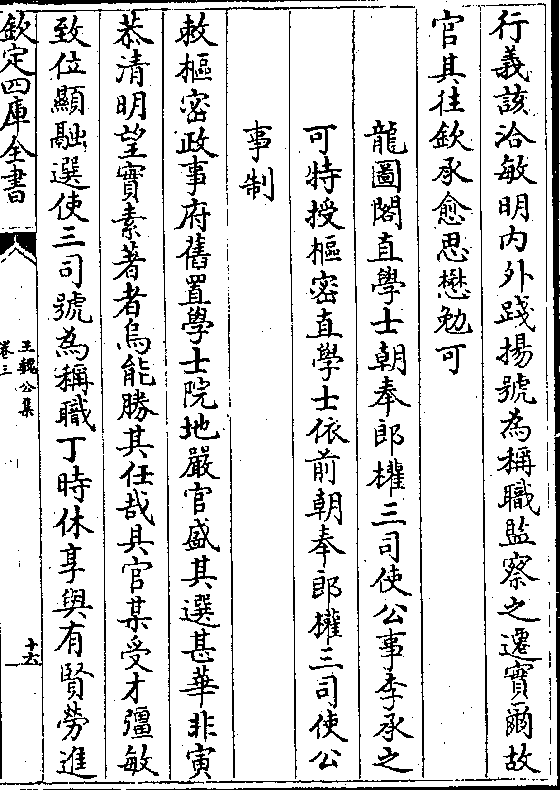 行義該洽敏明内外踐揚號為稱職監察之遷實爾故
官其往欽承愈思懋勉可
龍圖閣直學士朝奉郎權三司使公事李承之
可特授樞密直學士依前朝奉郎權三司使公
事制
敕樞密政事府舊置學士院地嚴官盛其選甚華非寅
恭清明望實素著者烏能勝其任哉具官某受才彊敏
致位顯融選使三司號為稱職丁時休享與有賢勞進
欽定四庫全書
王魏公集
卷三
十六